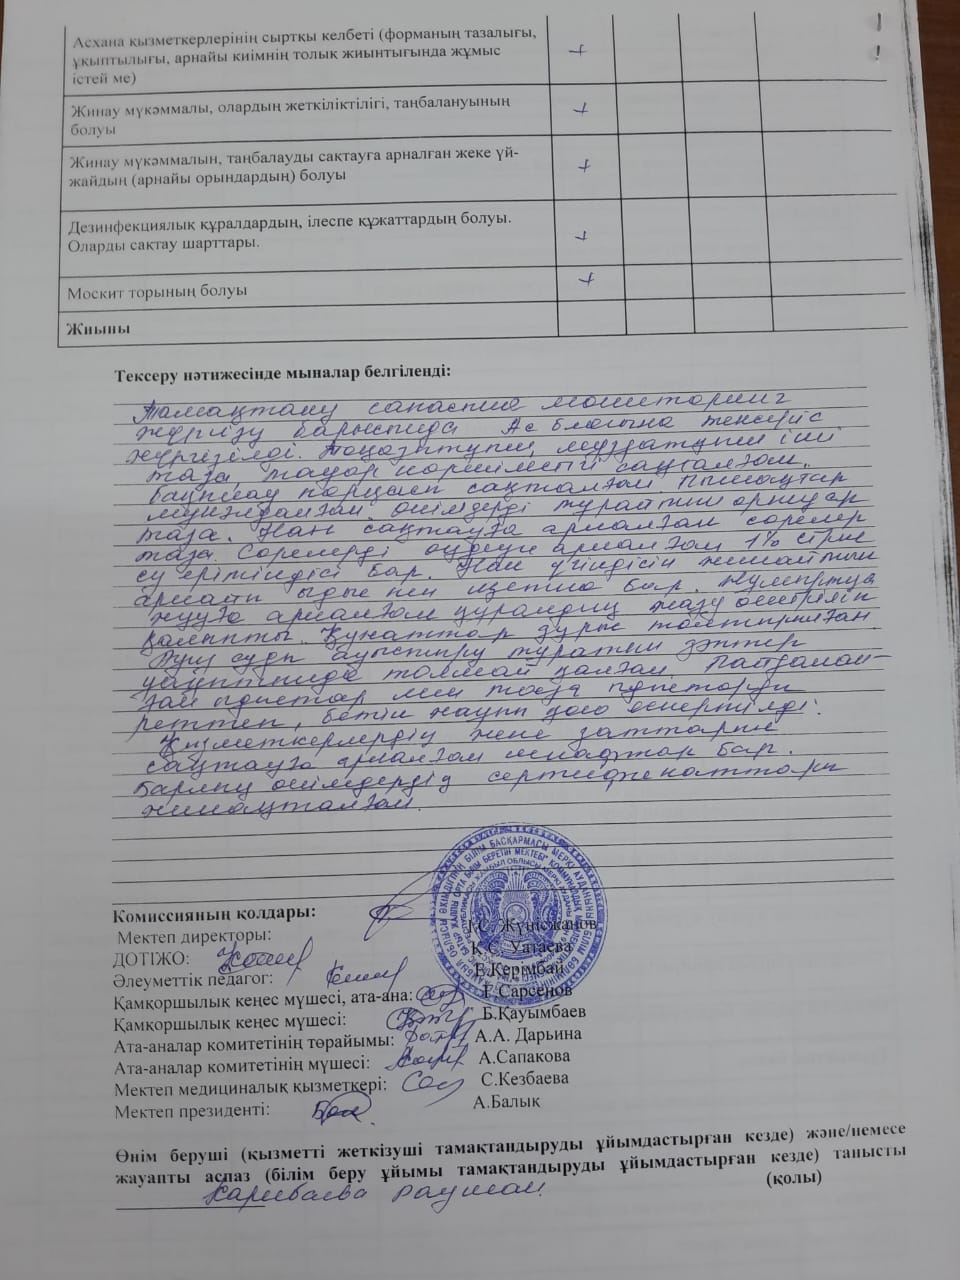 Асхана қызметкерлерінің сыртқы келбеті (форманың тазалығы,
ұқыптылығы, арнайы киімнің толық жиынтығында жұмыс
істей ме)
+
Жинау мүкәммалы, олардың жеткіліктілігі, таңбалануының
болуы
+
Жинау мүкәммалын, таңбалауды сақтауға арналған жеке үй-
жайдың (арнайы орындардың) болуы
+
Дезинфекциялық құралдардың, ілеспе құжаттардың болуы.
Оларды сақтау шарттары.
+
Москит торының болуы
+
Жиыны
Тексеру нәтижесінде мыналар белгіленді:
Тамақтану сапасына мониторинг
жүргізу барысында Ас блогына тексеріс
жүргізілді. Тоңазытқыш, мұздатқыш іші
таза, тауар көршілестігі сақталған.
Бақылау порциясы сақталған. Пышақтар
өнімдерді тұратын орындар
таза. Нан сақтауға арналған сөрелер
таза. Сөрелерді өңдеуге арналған 1% сірке
су ерітіндісі бар. Нан үгіндісін жинайтын
арнайы ыдыс пен щетка бар. Жұмыртқа
жууға арналған құралдың жазу өшірілін
қалыпты. Құжаттар дұрыс толтырылған.
ауыстыру тұратын
толмай қалған. Пайдалан-
ған мен таза
реттеп, бетін жауып қою ескертілді.
Қызметкерлердің жеке заттарын
сақтауға арналған шкафтар бар.
Барлық өнімдердің сертификаттары
жинақталған.
Комиссияның қолдары:
Мектеп директоры: Жүнісжанов
ДОТІЖО: К.С. Уатаева
Әлеуметтік педагог: Е.Керімбай
Қамқоршылық кеңес мүшесі, ата-ана: Г.Сарсенов
Қамқоршылық кеңес мүшесі: Б.Қауымбаев
Ата-аналар комитетінің төрайымы: А.А. Дарьина
Ата-аналар комитетінің мүшесі: А.Сапакова
Мектеп медициналық қызметкері: С.Кезбаева
Мектеп президенті: А.Балық
Өнім беруші (қызметті жеткізуші тамақтандыруды ұйымдастырған кезде) және/немесе
жауапты аспаз (білім беру ұйымы тамақтандыруды ұйымдастырған кезде) танысты
Карибаева Раушан (қолы)